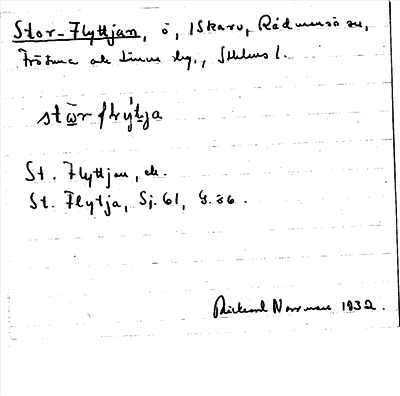 Stor-Flyttjan, ö, i Skarv, Rådmansö sn,
Frötuna och Länna skg., Sthlms l.
stōr flýtja
St. Flyttjan, ek.
St. Flytja, Sj. 61, G. 36.
Rickard Norrman 1932.